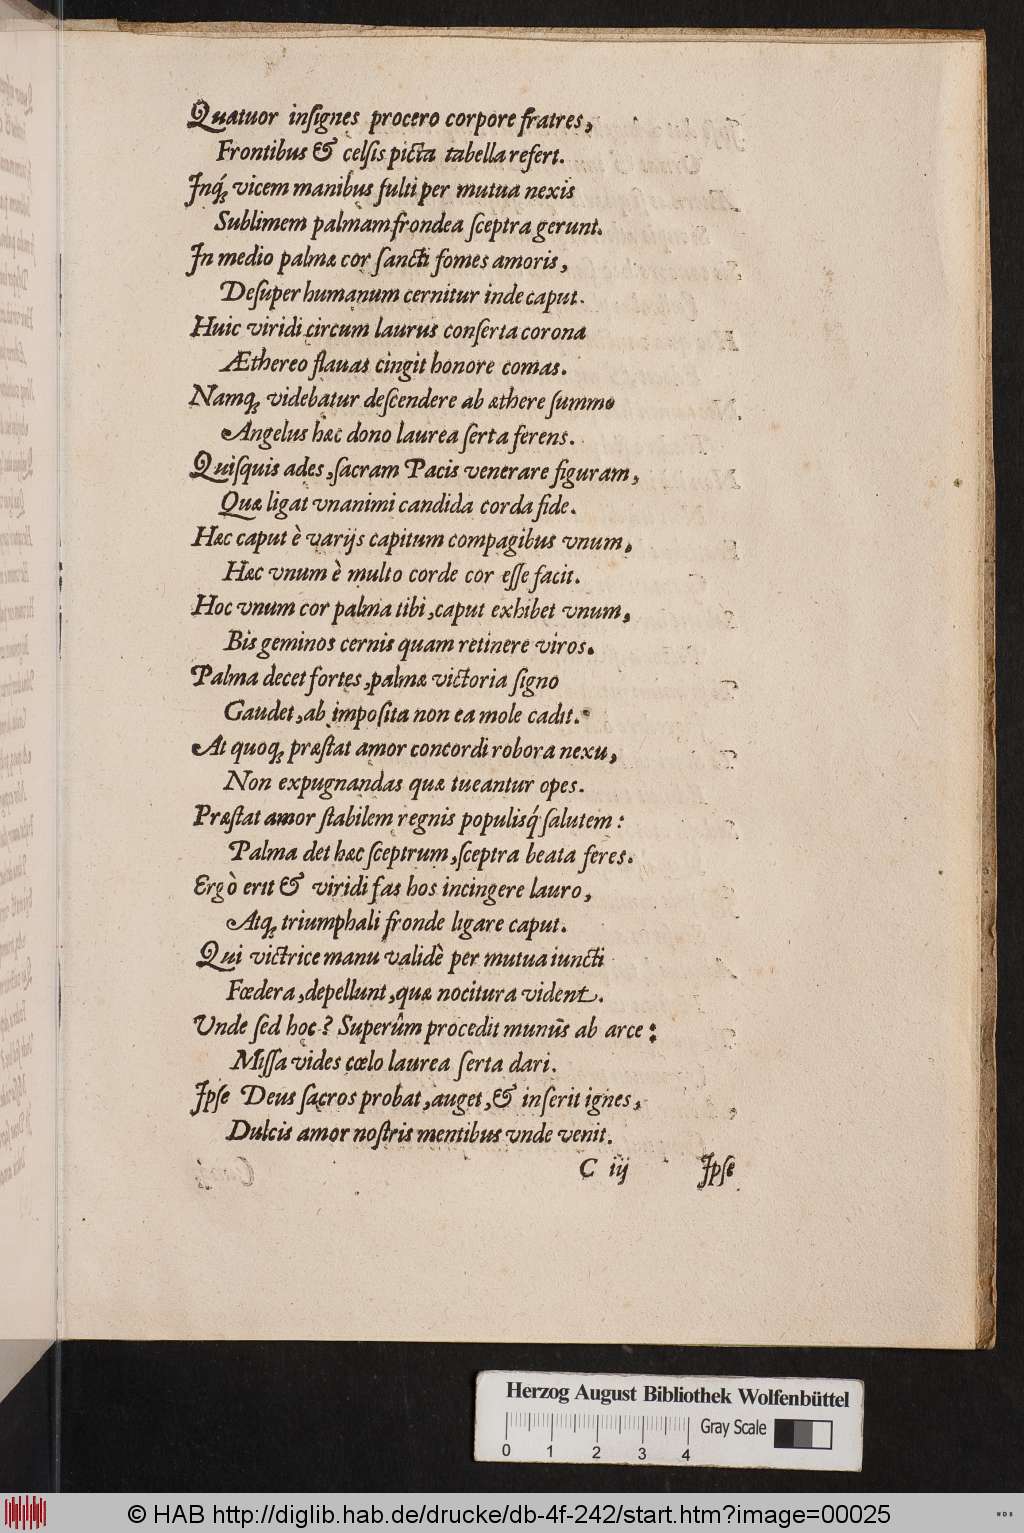 Quatuor insignes procero corpore fratres,
Frontibus & celsis picta tabella refert.
Inq́ꝫ vicem manibus fulti per mutua nexis
Sublimem palmam frondea sceptra gerunt.
In medio palmæ cor sancti fomes amoris,
Desuper humanum cernitur inde caput.
Huic viridi circum laurus conserta corona
Æthereo flauas cingit honore comas.
Namqꝫ videbatur descendere ab æthere summo
Angelus hæc dono laurea serta ferens.
Quisquis ades, sacram Pacis venerare figuram,
Quæ ligat vnanimi candida corda fide.
Hæc caput è varijs capitum compagibus vnum,
Hæc vnum è multo corde cor esse facit.
Hoc vnum cor palma tibi, caput exhibet vnum,
Bis geminos cernis quam retinere viros.
Palma decet fortes, palmæ victoria signo
Gaudet, ab imposita non ea mole cadit.
At quoqꝫ præstat amor concordi robora nexu,
Non expugnandas quæ tueantur opes.
Præstat amor stabilem regnis populisq́ salutem:
Palma det hæc sceptrum, sceptra beata feres.
Ergò erit & viridi fas hos incingere lauro,
Atqꝫ triumphali fronde ligare caput.
Qui victrice manu validè per mutua iuncti
Fœdera, depellunt, quæ nocitura vident.
Unde sed hoc? Superûm procedit munus ab arce:
Missa vides cœlo laurea serta dari.
Ipse Deus sacros probat, auget, & inserit ignes,
Dulcis amor nostris mentibus vnde venit.
C iij Ipse
Herzog August Bibliothek Wolfenbüttel
Gray Scale
0 1 2 3 4
© HAB http://diglib.hab.de/drucke/db-4f-242/start.htm?image=00025